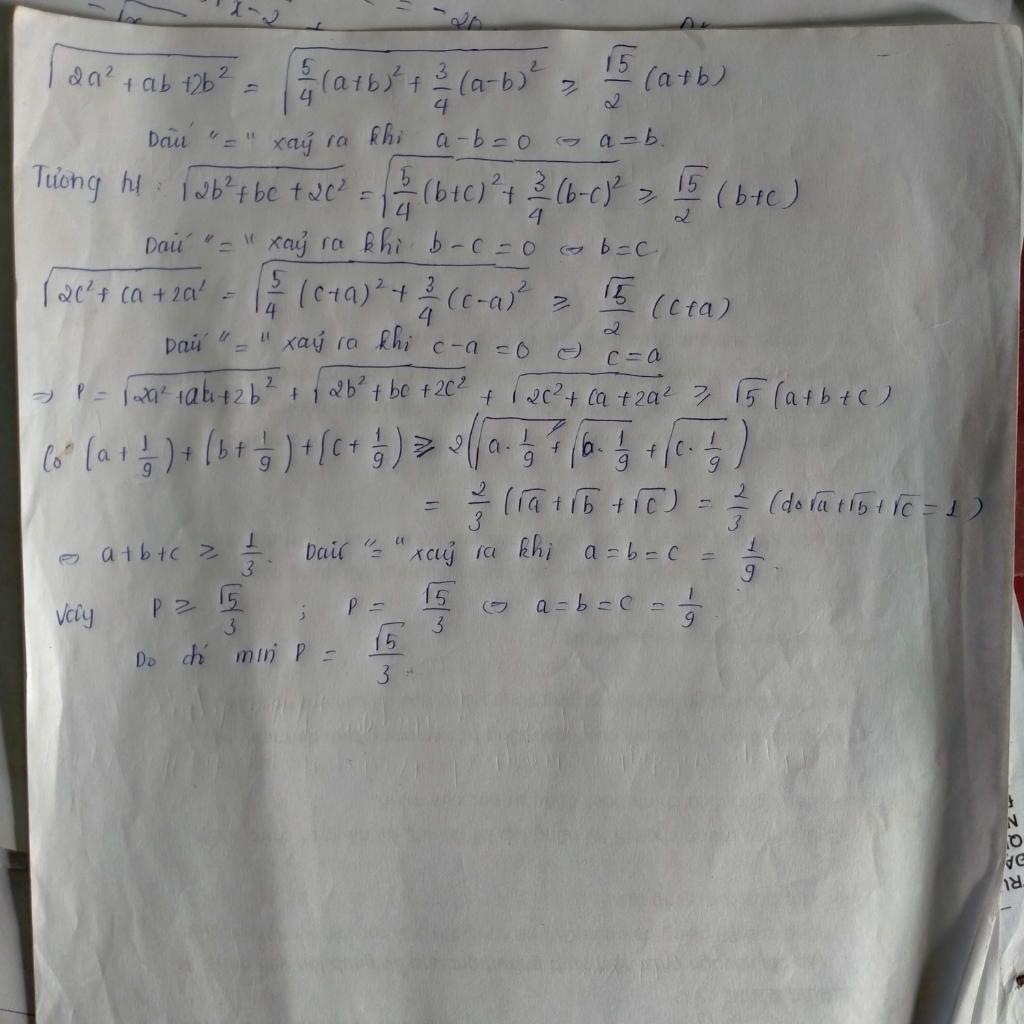 √(2a² + ab + 2b²) = √(5/4 (a+b)² + 3/4 (a-b)²) ≥ √5/2 (a+b)
Dấu "=" xảy ra khi a - b = 0 ⇔ a = b.
Tương tự : √(2b² + bc + 2c²) = √(5/4 (b+c)² + 3/4 (b-c)²) ≥ √5/2 (b+c)
Dấu "=" xảy ra khi b - c = 0 ⇔ b = c
√(2c² + ca + 2a²) = √(5/4 (c+a)² + 3/4 (c-a)²) ≥ √5/2 (c+a)
Dấu "=" xảy ra khi c - a = 0 ⇔ c = a
⇒ P = √(2a² + ab + 2b²) + √(2b² + bc + 2c²) + √(2c² + ca + 2a²) ≥ √5 (a+b+c)
Có (a + 1/9) + (b + 1/9) + (c + 1/9) ≥ 2(√(a · 1/9) + √(b · 1/9) + √(c · 1/9))
= 2/3 (√a + √b + √c) = 2/3 (do √a + √b + √c = 1)
⇔ a + b + c ≥ 1/3. Dấu "=" xảy ra khi a = b = c = 1/9.
Vậy P ≥ √5/3 ; P = √5/3 ⇔ a = b = c = 1/9
Do đó min P = √5/3.